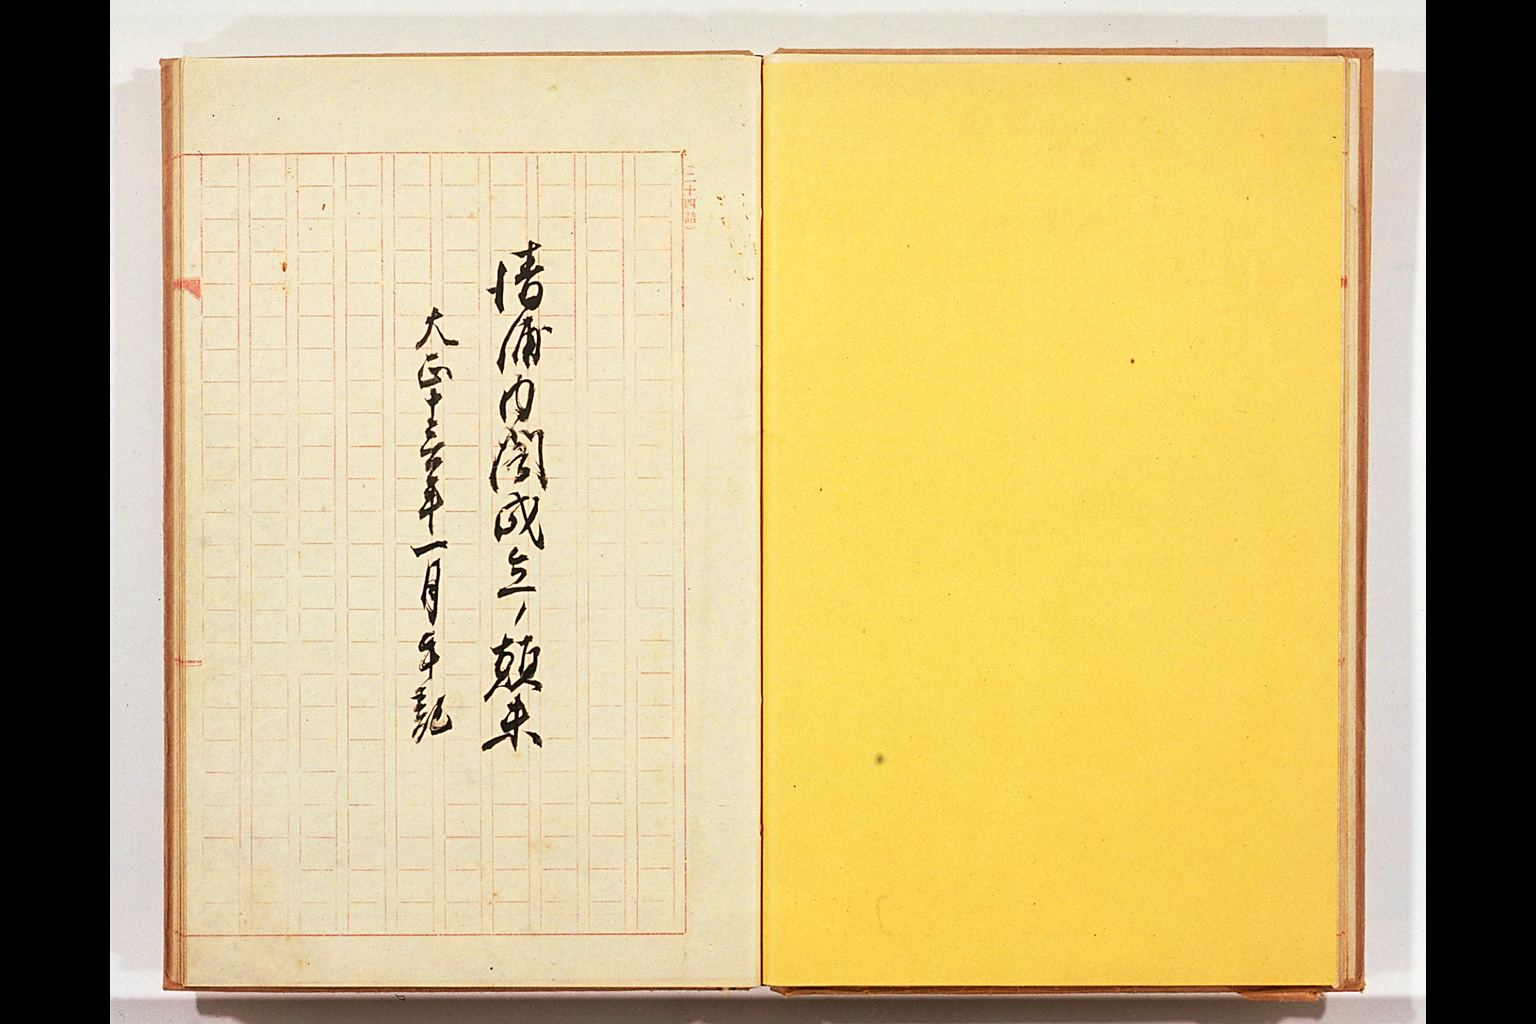 二十四詰)
清浦内閣成立ノ顛末
大正十三年一月手記